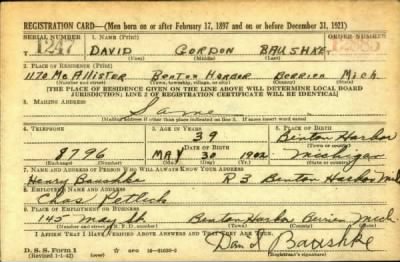 REGISTRATION CARD—(Men born on or after February 17, 1897 and on or before December 31, 1921)
SERIAL NUMBER 1. NAME (Print) ORDER NUMBER
T 1247 DAVID GORDON BAUSHKE 12385
(First) (Middle) (Last)
2. PLACE OF RESIDENCE (Print)
1170 McAllister Benton Harbor Berrien Mich
(Number and street) (Town, township, village, or city) (County) (State)
[THE PLACE OF RESIDENCE GIVEN ON THE LINE ABOVE WILL DETERMINE LOCAL BOARD
JURISDICTION; LINE 2 OF REGISTRATION CERTIFICATE WILL BE IDENTICAL]
3. MAILING ADDRESS
Same
[Mailing address if other than place indicated on line 2. If same insert word same]
4. TELEPHONE 5. AGE IN YEARS 6. PLACE OF BIRTH
39 Benton Harbor
DATE OF BIRTH (Town or county)
8796 MAY 30 1902 Michigan
(Exchange) (Number) (Mo.) (Day) (Yr.) (State or country)
7. NAME AND ADDRESS OF PERSON WHO WILL ALWAYS KNOW YOUR ADDRESS
Henry Baushke R 3 Benton Harbor Mich
8. EMPLOYER'S NAME AND ADDRESS
Chas Pettich
9. PLACE OF EMPLOYMENT OR BUSINESS
145 May St Benton Harbor Berrien Mich.
(Number and street or R. F. D. number) (Town) (County) (State)
I AFFIRM THAT I HAVE VERIFIED ABOVE ANSWERS AND THAT THEY ARE TRUE.
D. S. S. Form 1 David Baushke
(Revised 1-1-42) (over) (Registrant's signature)